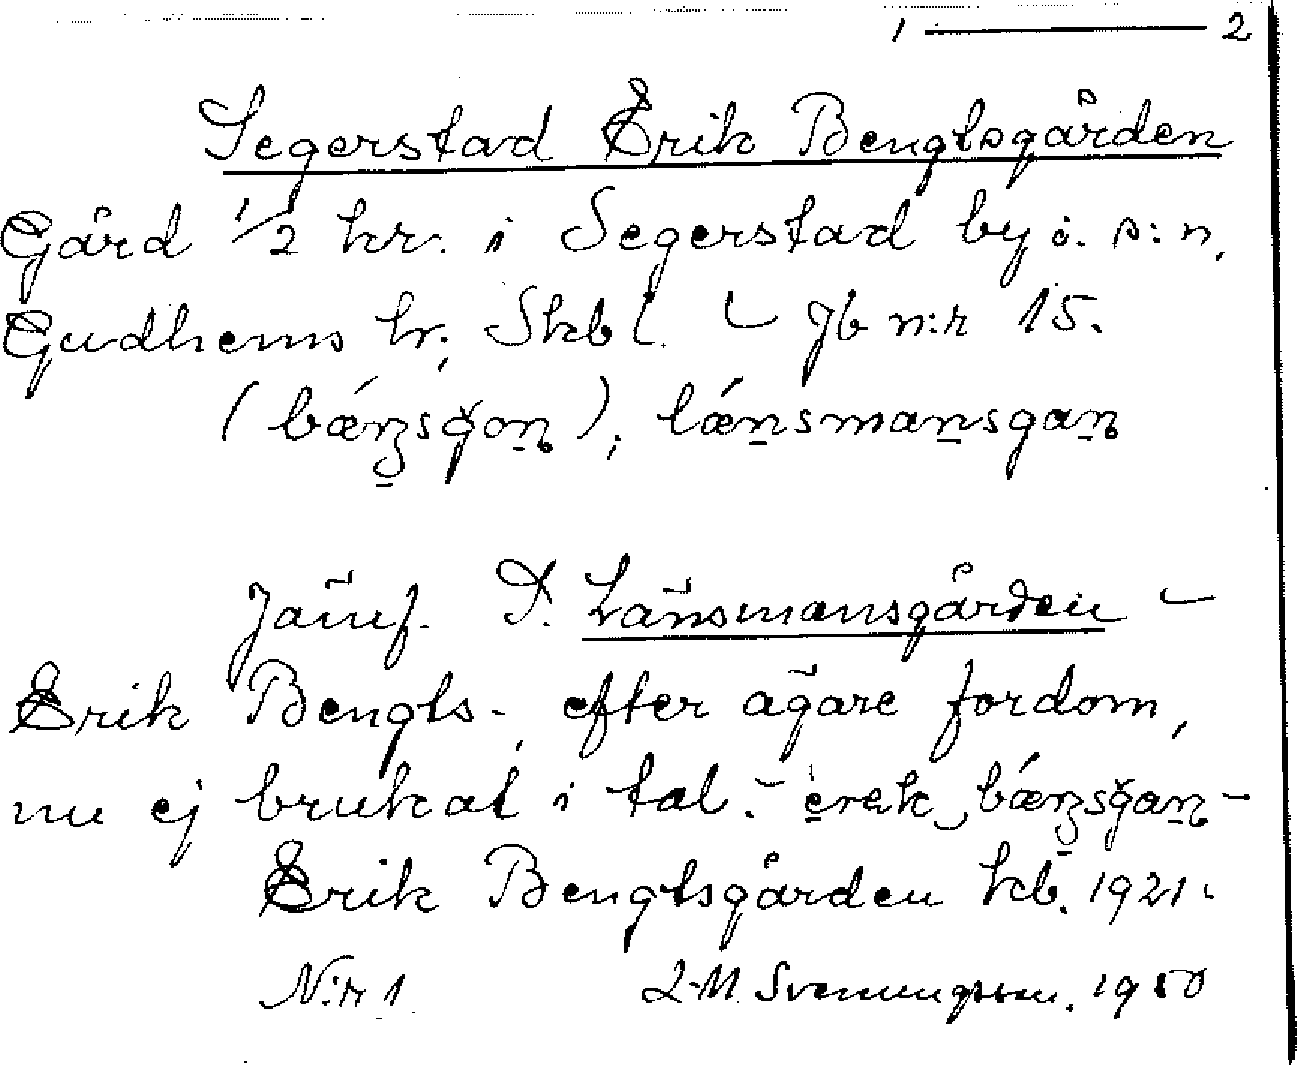 1 — 2
Segerstad Erik Bengtsgården
Gård 1/2 hr. i Segerstad by o. s:n,
Gudhems hr, Skbl. — Jb n:r 15.
(bǽn̥sgon̥), lǽnsmansgan̥
Jämf. P. Länsmansgården —
Erik Bengts-, efter ägare fordom,
nu ej brukat i tal. — erek bǽn̥sgan̥ —
Erik Bengtsgården kb. 1921.
N:r 1 Svenungsson. 1950